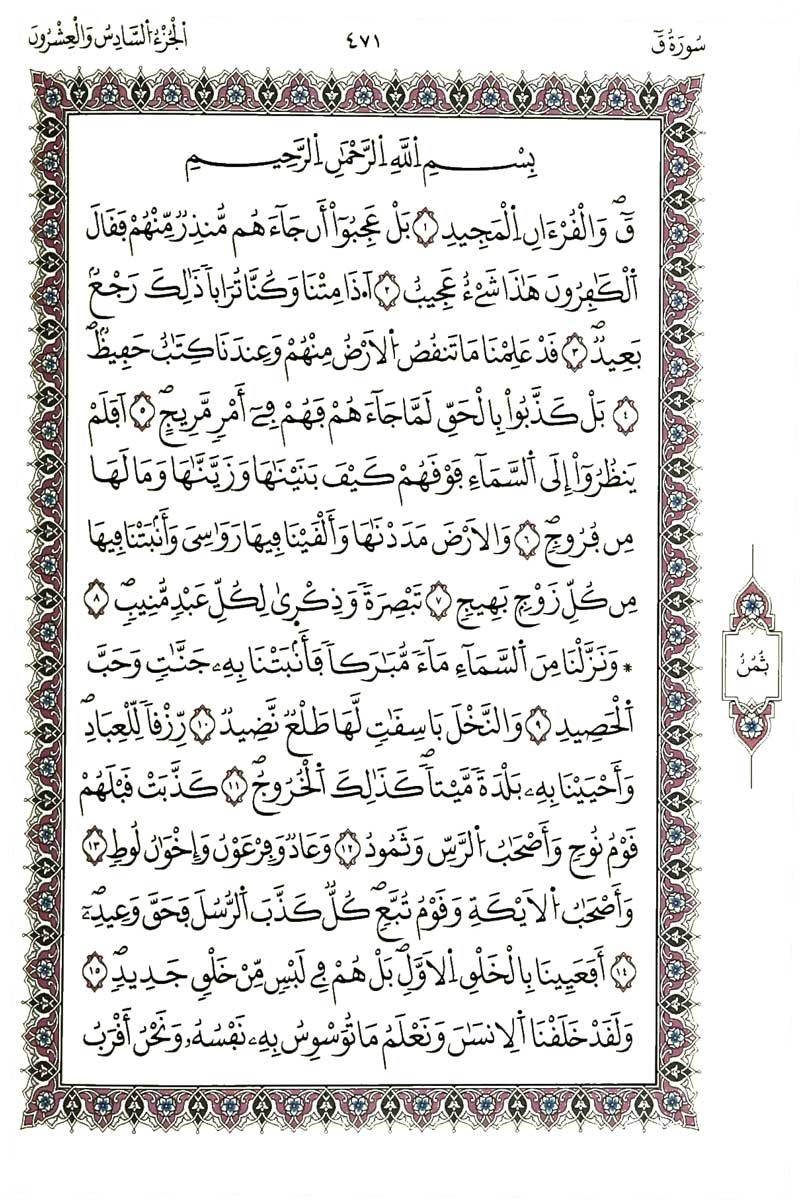 سُورَةُ قٓ
٤٧١
الجُزْءُ السَّادِسُ وَالْعِشْرُونَ
بِسْمِ اِ۬للَّهِ اِ۬لرَّحْمَٰنِ اِ۬لرَّحِيمِ
قٓۖ وَالْقُرْءَانِ اِ۬لْمَجِيدِ ١ بَلْ عَجِبُوٓاْ أَن جَآءَهُم مُّنذِرٌ مِّنْهُمْ فَقَالَ
اَ۬لْكَٰفِرُونَ هَٰذَا شَےْءٌ عَجِيبٌ ٢ اَ۟ذَا مِتْنَا وَكُنَّا تُرَاباٗ ذَٰلِكَ رَجْعُۢ
بَعِيدٞۖ ٣ قَدْ عَلِمْنَا مَا تَنقُصُ اُ۬لَارْضُ مِنْهُمْ وَعِندَنَا كِتَٰبٌ حَفِيظٞۖ
٤ بَلْ كَذَّبُواْ بِالْحَقِّ لَمَّا جَآءَهُمْ فَهُمْ فِےٓ أَمْرٖ مَّرِيجٍۖ ٥ اَفَلَمْ
يَنظُرُوٓاْ إِلَى اَ۬لسَّمَآءِ فَوْقَهُمْ كَيْفَ بَنَيْنَٰهَا وَزَيَّنَّٰهَا وَمَا لَهَا
مِن فُرُوجٖۖ ٦ وَالَارْضَ مَدَدْنَٰهَا وَأَلْقَيْنَا فِيهَا رَوَٰسِيَ وَأَنۢبَتْنَا فِيهَا
مِن كُلِّ زَوْجِۢ بَهِيجٖ ٧ تَبْصِرَةٗ وَذِكْر۪ىٰ لِكُلِّ عَبْدٖ مُّنِيبٖۖ ٨
* وَنَزَّلْنَا مِنَ اَ۬لسَّمَآءِ مَآءٗ مُّبَٰرَكاٗ فَأَنۢبَتْنَا بِهِۦ جَنَّٰتٖ وَحَبَّ
اَ۬لْحَصِيدِ ٩ وَالنَّخْلَ بَاسِقَٰتٖ لَّهَا طَلْعٞ نَّضِيدٞ ١٠ رِّزْقاٗ لِّلْعِبَادِۖ
وَأَحْيَيْنَا بِهِۦ بَلْدَةٗ مَّيْتاٗۖ كَذَٰلِكَ اَ۬لْخُرُوجُۖ ١١ كَذَّبَتْ قَبْلَهُمْ
قَوْمُ نُوحٖ وَأَصْحَٰبُ اُ۬لرَّسِّ وَثَمُودُ ١٢ وَعَادٞ وَفِرْعَوْنُ وَإِخْوَٰنُ لُوطٖ ١٣
وَأَصْحَٰبُ اُ۬لَايْكَةِ وَقَوْمُ تُبَّعٖۖ كُلّٞ كَذَّبَ اَ۬لرُّسُلَ فَحَقَّ وَعِيدِۦۖ
١٤ أَفَعَيِينَا بِالْخَلْقِ اِ۬لَاوَّلِۖ بَلْ هُمْ فِے لَبْسٖ مِّنْ خَلْقٖ جَدِيدٖۖ ١٥
وَلَقَدْ خَلَقْنَا اَ۬لِانسَٰنَ وَنَعْلَمُ مَا تُوَسْوِسُ بِهِۦ نَفْسُهُۥ وَنَحْنُ أَقْرَبُ
ثُمُنُ